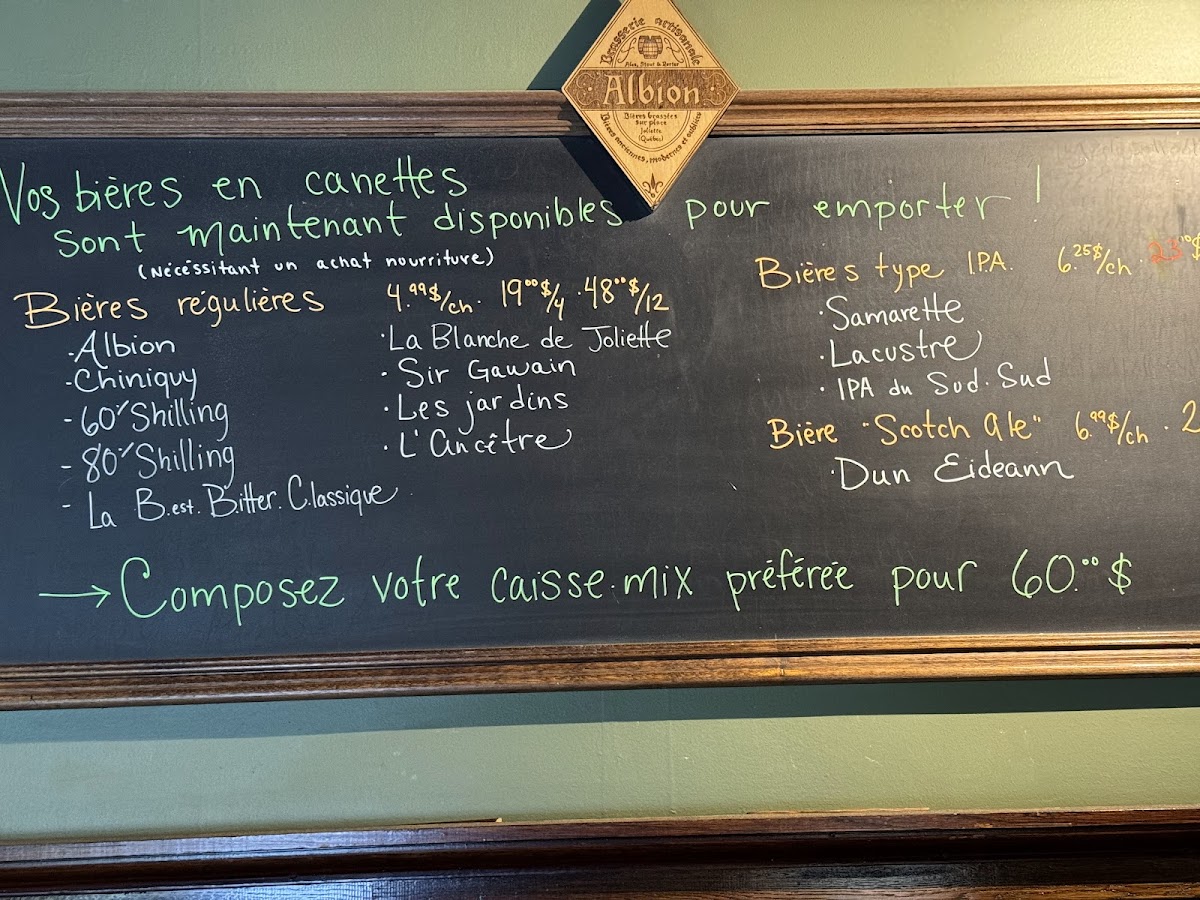 Brasserie artisanale
Ales, Stout & Porter
Albion
Bières brassées
sur place
Joliette
(Québec)
Bières anciennes, modernes et oubliées
Vos bières en canettes
sont maintenant disponibles pour emporter !
(Nécéssitant un achat nourriture)
Bières régulières 4.99$/ch. 19.00$/4 · 48.00$/12
-Albion
-Chiniquy
-60/Shilling
-80/Shilling
- La B.est. B.itter. C.lassique
·La Blanche de Joliette
· Sir Gawain
· Les jardins
· L'Ancêtre
Bières type IPA. 6.25$/ch · 23
·Samarette
·Lacustre
· IPA du Sud·Sud
Bière "Scotch Ale" 6.99$/ch · 2
·Dun Eideann
→ Composez votre caisse·mix préférée pour 60.00 $